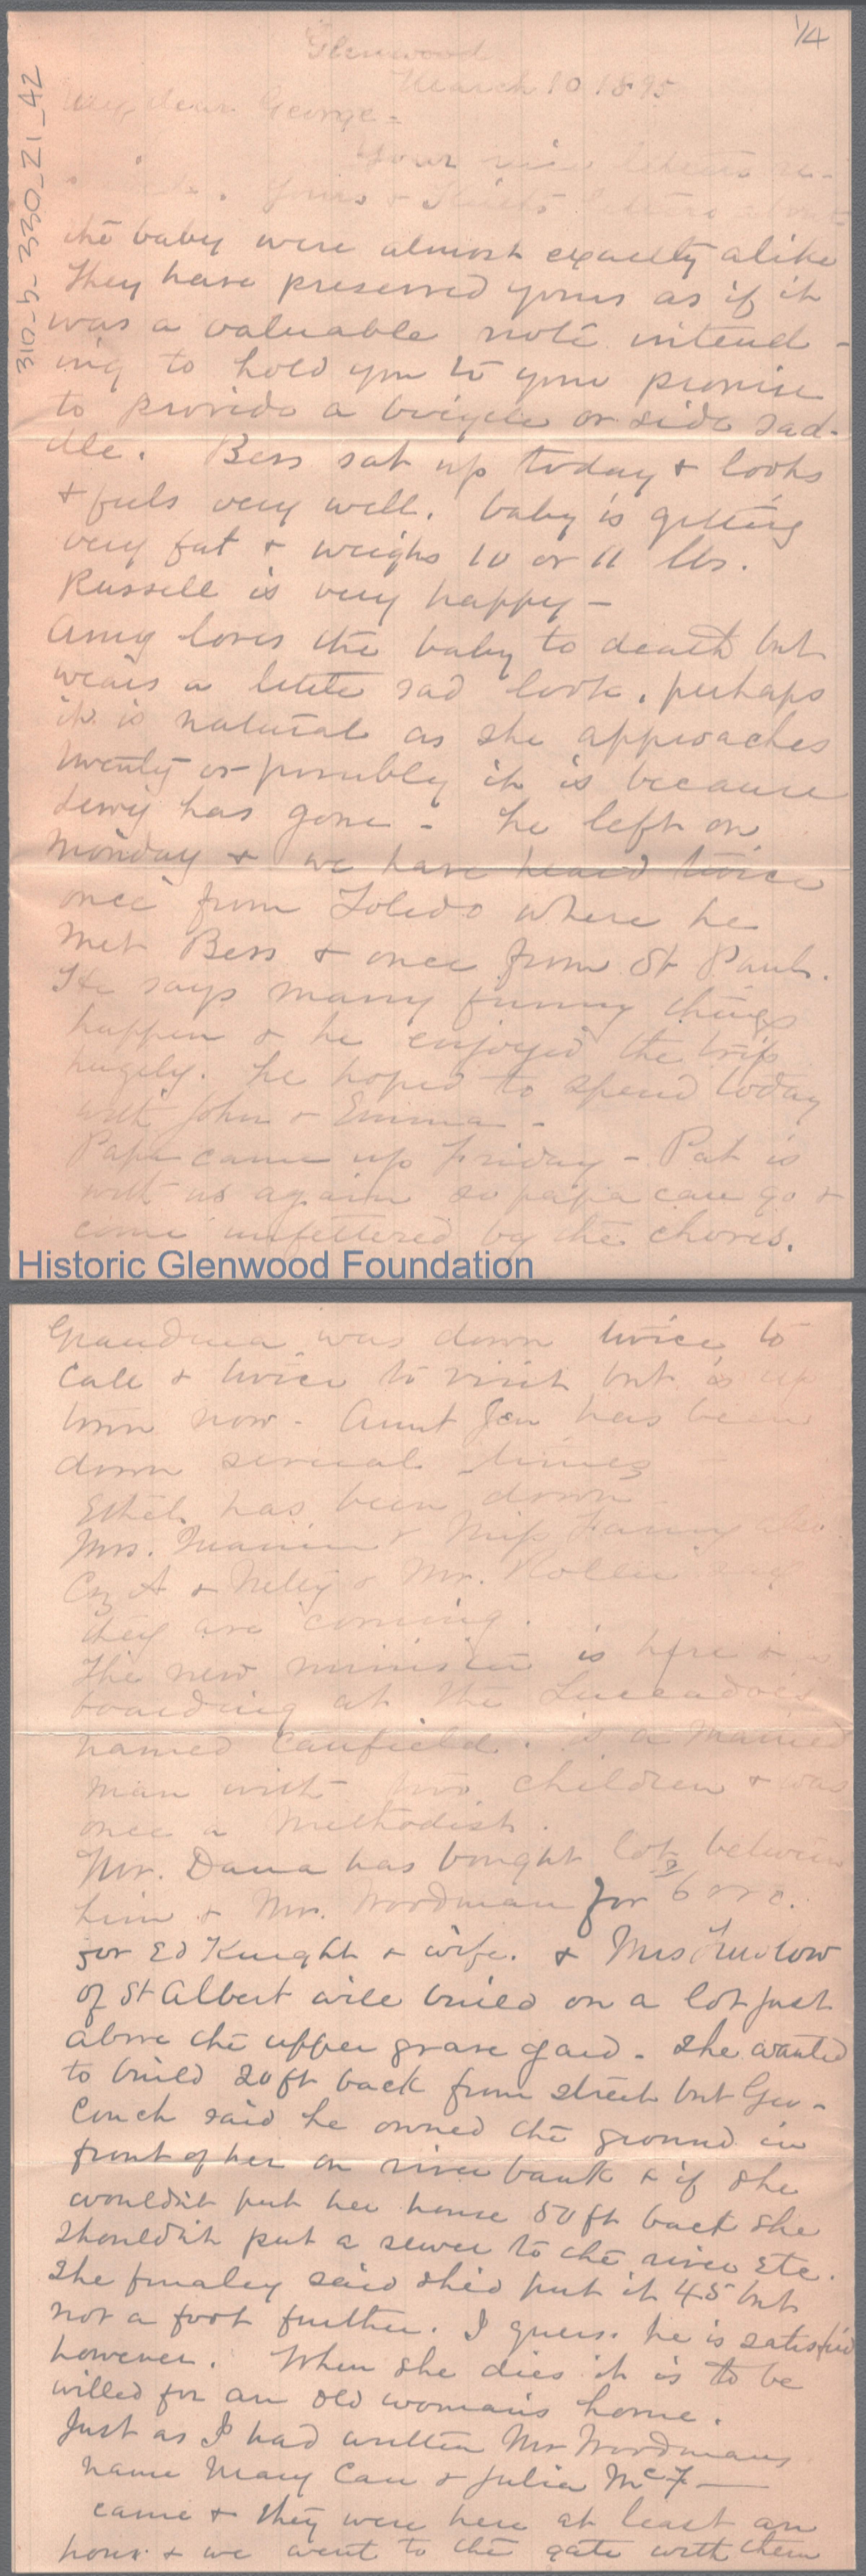 1/4
310_b_330_21_42
Glenwood
March 10 1895
My dear George -
Your nice letters
Yours & letters about
the baby were almost exactly alike
They have preserved yours as if it
was a valuable note intend-
ing to hold you to your promise
to provide a bicycle or side sad-
dle. Bess sat up today & looks
& feels very well. baby is getting
very fat & weighs 10 or 11 lbs.
Russell is very happy -
Amy loves the baby to death but
wears a little sad look, perhaps
it is natural as she approaches
twenty or possibly it is because
has gone - he left on
Monday & we have heard twice
once from Toledo where he
met Bess & once from St Paul.
He says many funny things
happen & he enjoyed the trip
hugely. he hoped to spend today
with John & Emma -
Papa came up Friday - Pat is
with us again so papa can go &
come unfettered by the chores.
Historic Glenwood Foundation
Grandma was down twice to
call & twice to visit but is up
town now - Aunt Jen has been
down several times
Ethel has been down
Mrs. & Miss Fanny also
A & & Mr.
they are coming.
The new minister is here & is
boarding at the
named Canfield. is a married
man with two children & was
once a Methodist.
Mr. Dana has bought lot between
him & Mr. Woodman for
for Ed Knight & wife. & Mrs
of St Albert will build on a lot just
above the upper grave yard - she wanted
to build 20 ft back from street but Geo-
Couch said he owned the ground in
front of her on river bank & if she
wouldn't put her house 50 ft back she
shouldn't put a sewer to the river etc.
She finaley said she'd put it 45 but
not a foot further. I guess he is satisfied
however. When she dies it is to be
willed for an old woman's home.
Just as I had written Mr Woodmans
name Mary Carr & Julia McF—
came & they were here at least an
hour & we went to the gate with them